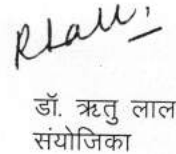 RLall
डॉ. ऋतु लाल
संयोजिका